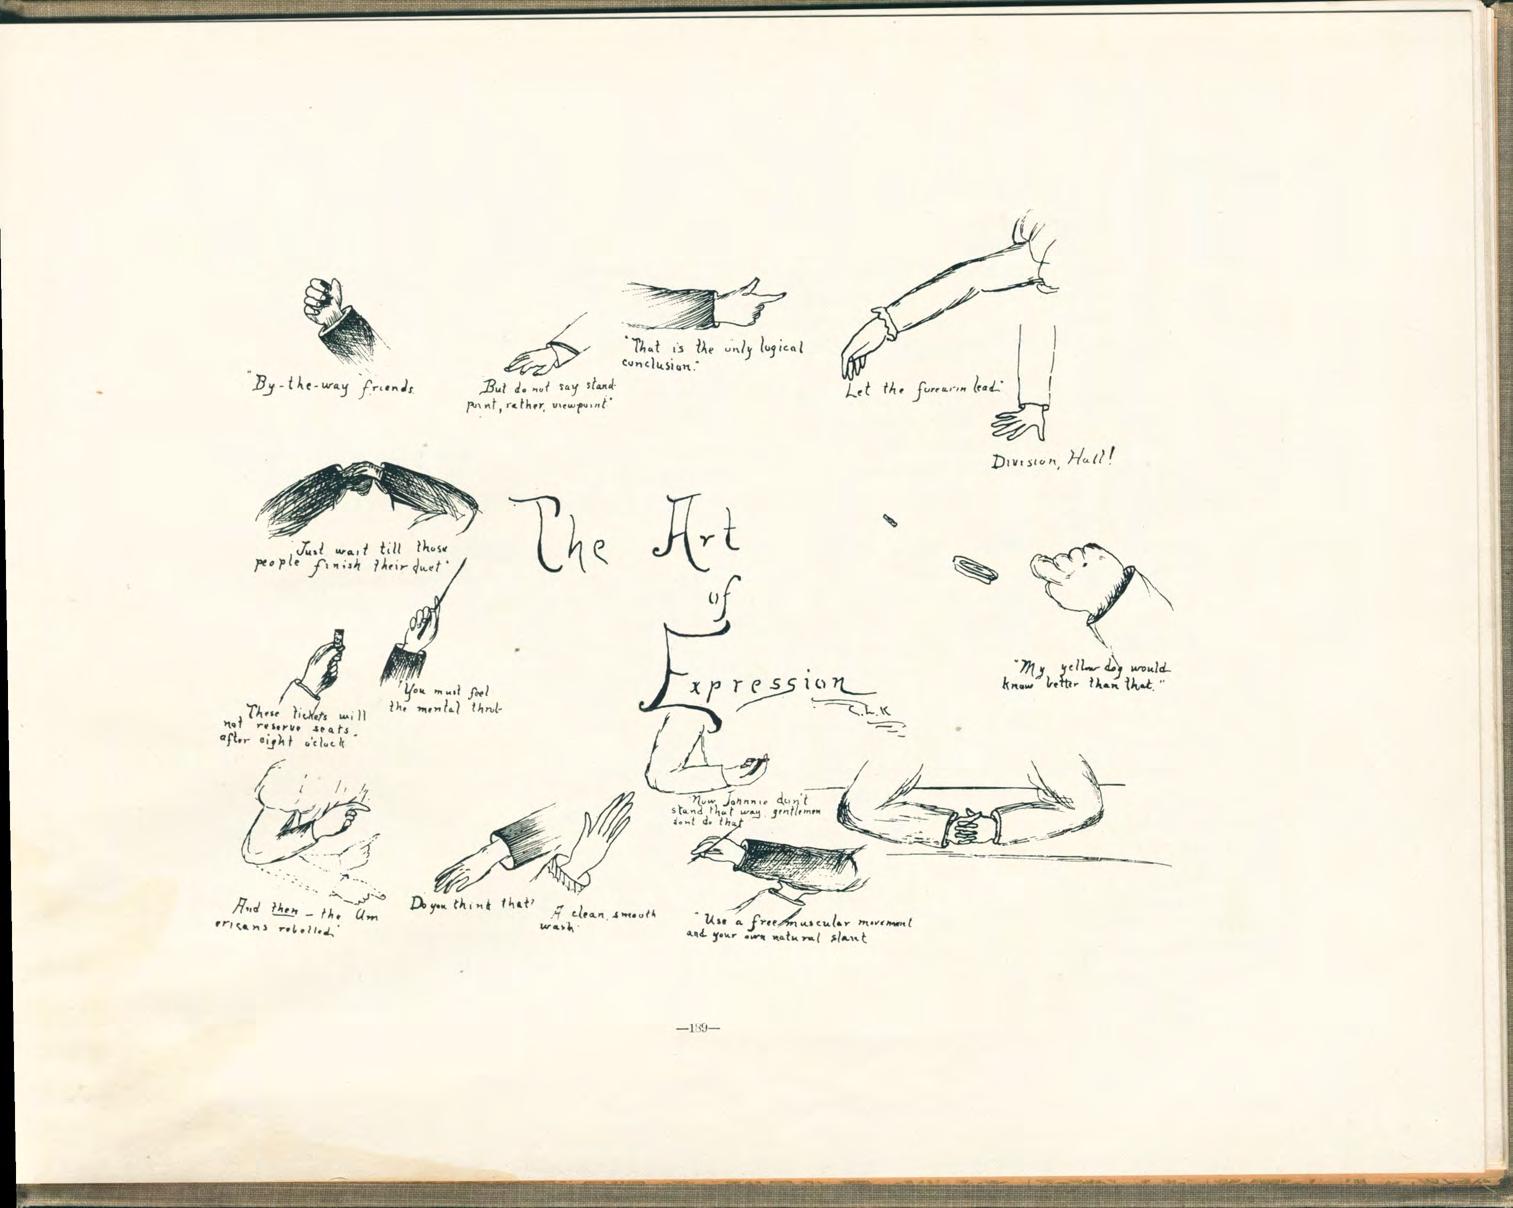 "By-the-way friends.
But do not say stand-
point, rather, viewpoint"
"That is the only logical
conclusion."
Let the forearm lead"
Division, Halt!
"Just wait till those
people finish their duet"
The Art
of
Expression
C.L.K
"My yellow dog would
know better than that."
"You must feel
the mental throb
These tickets will
not reserve seats
after eight o'clock"
"Now Johnnie don't
stand that way, gentlemen
dont do that
And then – the Um
ericans rebelled"
Do you think that?
A clean, smooth
wash"
"Use a free muscular movement
and your own natural slant
—189—